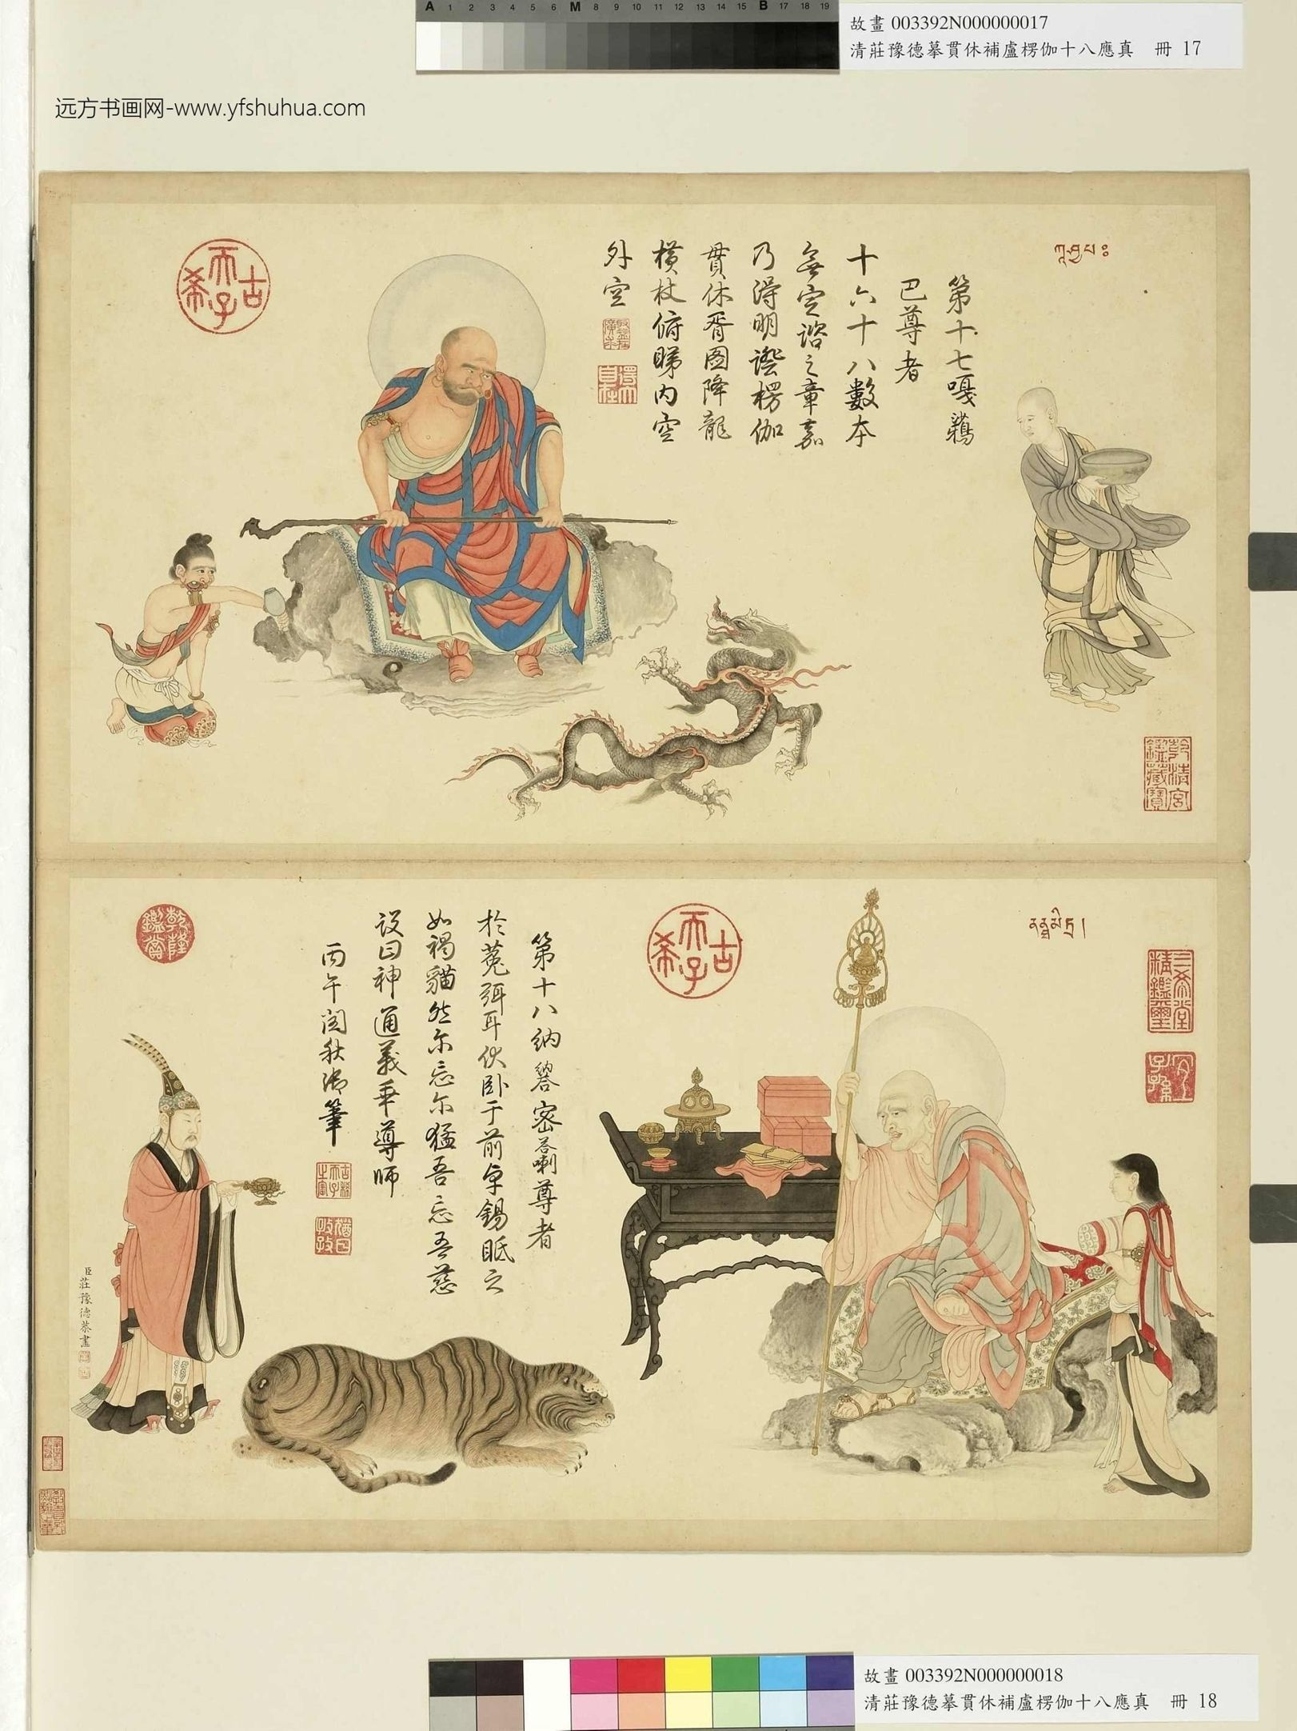 A 1 2 3 4 5 6 M 8 9 10 11 12 13 14 15 B 17 18 19
故畫 003392N000000017
清莊豫德摹貫休補盧楞伽十八應真 冊 17
远方书画网-www.yfshuhua.com
ཀཱ་ཤྱ་པ༔
第十七嘎鴉
巴尊者
十六十八數本
無定諮之章嘉
乃得明證楞伽
貫休胥圖降龍
橫杖俯睇內空
外空
古希天子
乾清宮鑑藏寶
三希堂精鑑璽
宜子孫
古希天子
第十八納納答密答喇尊者
於菟弭耳伏卧于前卓錫眡之
如褐貓然尔忘尔猛吾忘吾慈
设曰神通義乖尊師
丙午閏秋御筆
古稀天子之寶
猶日孜孜
乾隆鑑賞
臣莊豫德恭畫
故畫 003392N000000018
清莊豫德摹貫休補盧楞伽十八應真 冊 18